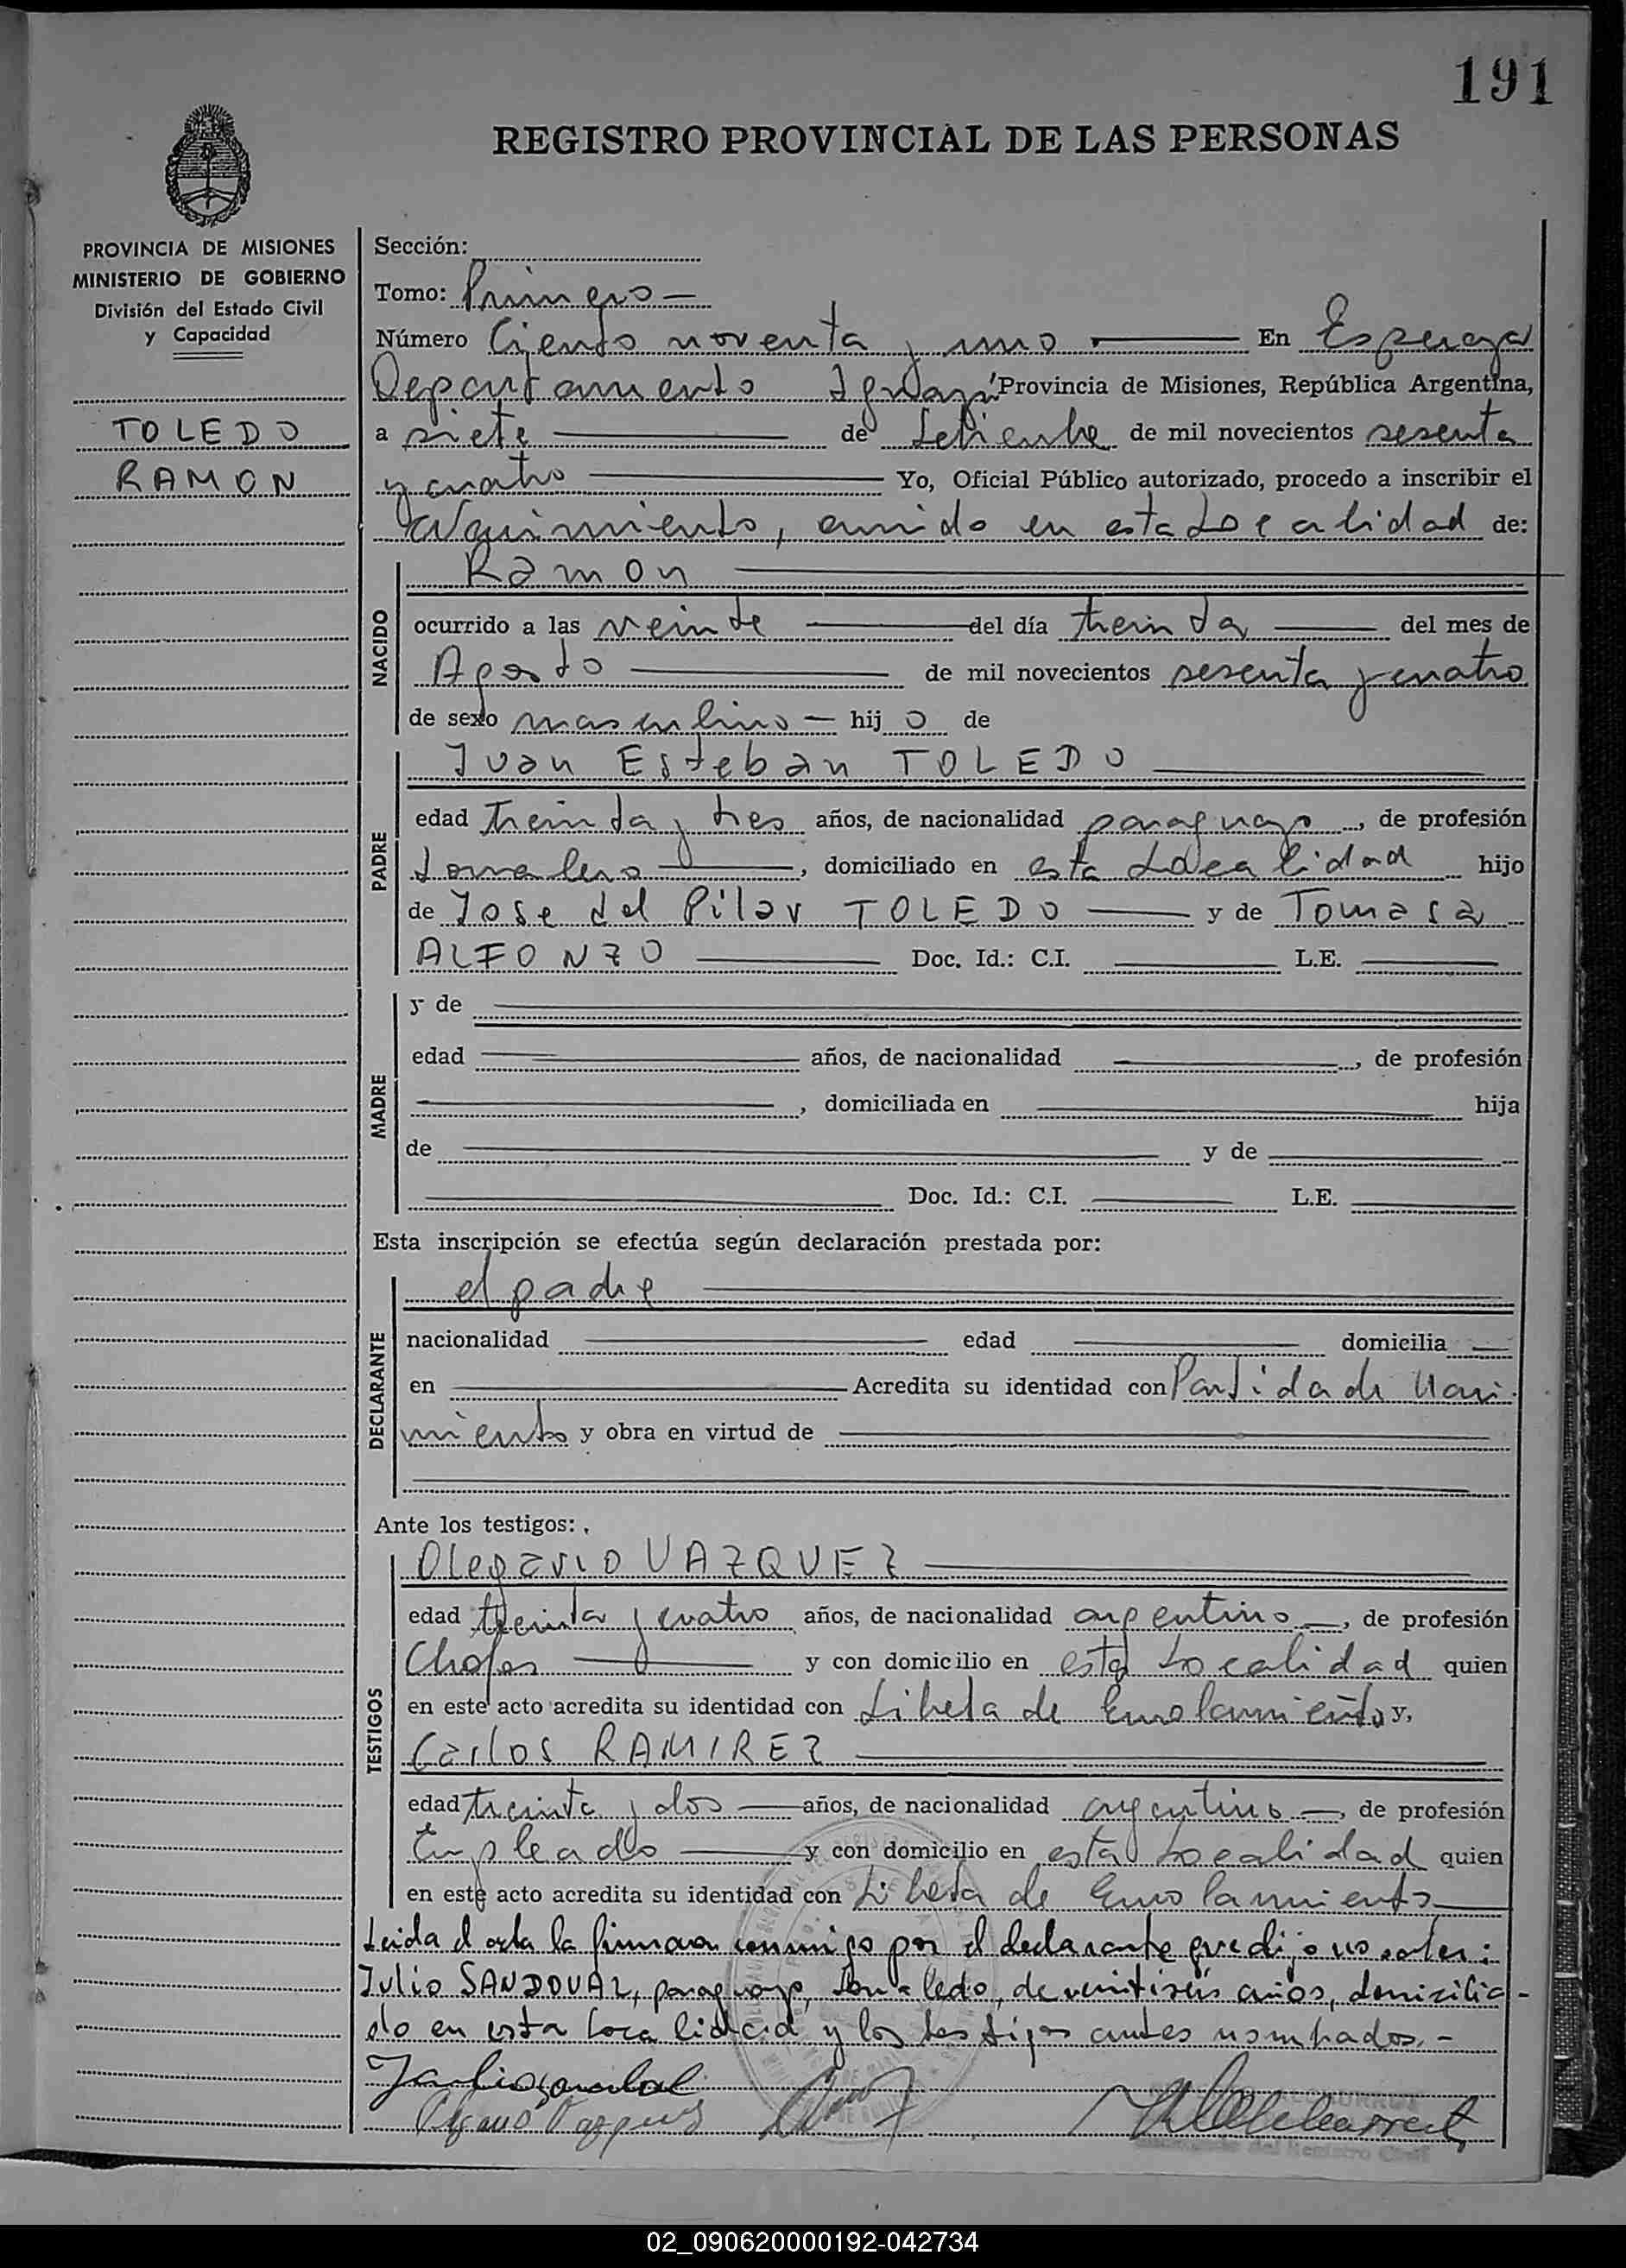 191
REGISTRO PROVINCIAL DE LAS PERSONAS
PROVINCIA DE MISIONES
MINISTERIO DE GOBIERNO
División del Estado Civil
y Capacidad
TOLEDO
RAMON
Sección:
Tomo: Primero —
Número Ciento noventa y uno — En Esperanza
Departamento Iguazú Provincia de Misiones, República Argentina,
a siete — de Setiembre de mil novecientos sesenta
y cuatro — Yo, Oficial Público autorizado, procedo a inscribir el
Nacimiento, ocurrido en esta Localidad de:
NACIDO
Ramon —
ocurrido a las veinte — del día treinta — del mes de
Agosto — de mil novecientos sesenta y cuatro
de sexo masculino — hijo de
PADRE
Juan Esteban TOLEDO —
edad treinta y tres años, de nacionalidad paraguayo, de profesión
Jornalero —, domiciliado en esta Localidad hijo
de Jose del Pilar TOLEDO — y de Tomasa
ALFONZO — Doc. Id.: C.I. — L.E. —
MADRE
y de —
edad — años, de nacionalidad —, de profesión
—, domiciliada en — hija
de — y de —
— Doc. Id.: C.I. — L.E. —
Esta inscripción se efectúa según declaración prestada por:
DECLARANTE
el padre —
nacionalidad — edad — domicilia —
en — Acredita su identidad con Partida de Naci-
miento y obra en virtud de —
Ante los testigos:
TESTIGOS
Olegario VAZQUEZ —
edad treinta y cuatro años, de nacionalidad argentino —, de profesión
Chofer — y con domicilio en esta Localidad quien
en este acto acredita su identidad con Libreta de Enrolamiento y,
Carlos RAMIREZ —
edad treinta y dos — años, de nacionalidad argentino —, de profesión
Empleado — y con domicilio en esta Localidad quien
en este acto acredita su identidad con Libreta de Enrolamiento —
Leida el acta la firman conmigo por el declarante que dijo no saber:
Julio SANDOVAL, paraguayo, de veintiseis años, domicilia-
do en esta localidad y los testigos antes nombrados.-
Julio Sandoval
Olegario Vazquez
del Registro Civil
02_090620000192-042734